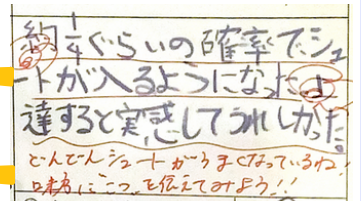 約1/4ぐらいの確率でシュ
ートが入るようになった。上
達すると実感してうれしかった。
どんどんシュートがうまくなっているね!
味方にコツを伝えてみよう!!